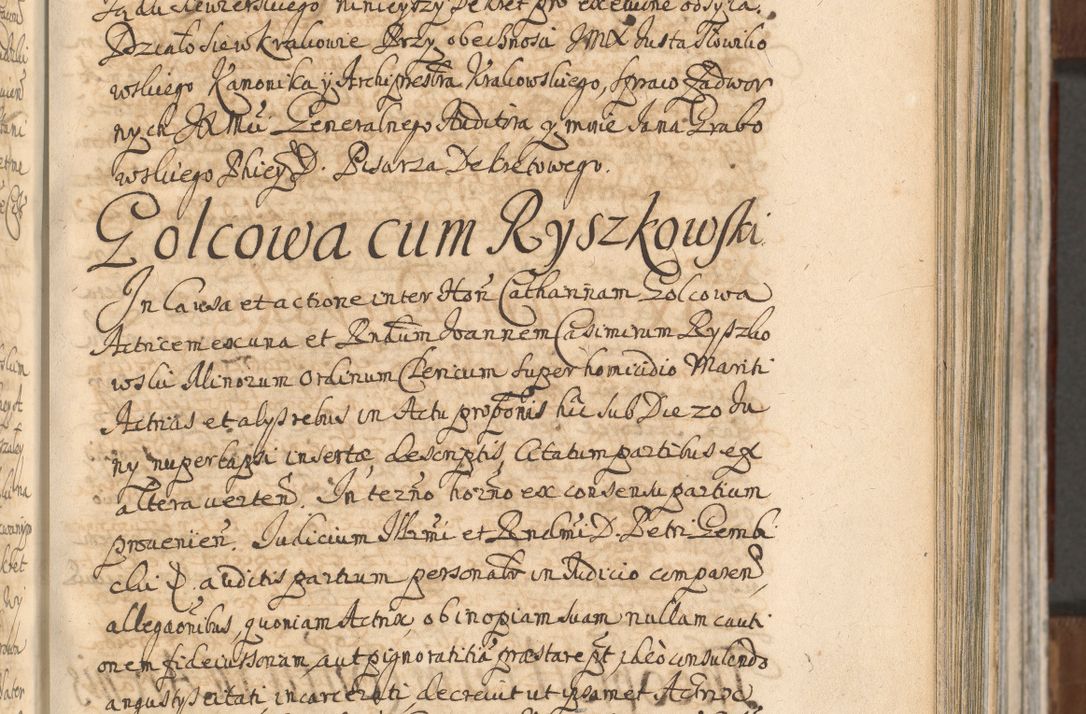 Sądu Siewierskiego ninieyszy Dekret pro executione odsyła.
Działo się w Krakowie Przy obecności JMX Justa Słowiko
wskiego Kanonika y Archipresbra Krakowskiego, Spraw Zadwor
nych JXMci Generalnego Auditora y mnie Jana Grabo
wskiego Pisarza Dekretowego.
Golcowa cum Ryszkowski.
In Causa et actione inter Hon Catharinam Golcowa
Actricem ex una et Rndum Joannem Casimirum Ryszko
wski Minorum Ordinum Clericum super homicidio Mariti
Actricis et alys rebus in Actu propōnis hic sub Die 20 Ju
ny nuper lapsi insertæ descriptis Citatum partibus ex
altera verteñ. In terño horño ex consensu partium
proveniеñ. Judicium Illrmi et Rndmi D. Petri Gembi
cki D. auditis partium personalr in Judicio compareñ
allegaōnibus, quoniam Actrix, ob inopiam suam nullam cauti
onem fideiussoriam, aut pignoratitiā præstare pt, ideò consulendo
angustys citati incarcerati, decrevit ut ipsamet Actrix